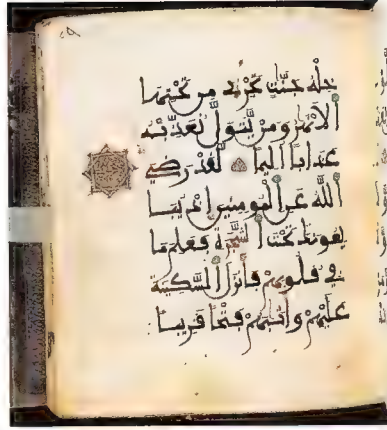 خله جنّٰت تجرے من تحتها
ٱلانهٰر ومن يّتولّ نعذّبه
عذابا اليما لّقد رضي
ٱلله عن ٱلمومنين إذ يبا
يعونك تحت ٱلشّجرة فعلم ما
في قلوبهم فأنزل ٱلسّكينة
عليهم وأثٰبهم فتحا قريبا